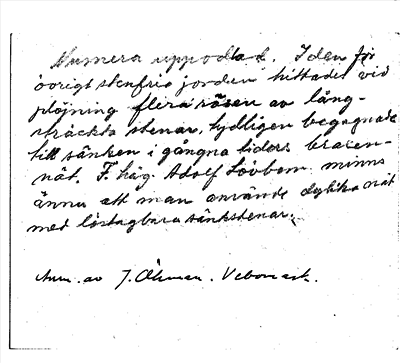 Numera uppodlad. I den för
övrigt stenfria jorden hittades vid
plöjning flera rösen av lång-
sträckta stenar, tydligen begagnade
till sänken i gångna tiders braxen-
nät. F. häg. Adolf Lövbom minns
ännu att man använde dylika nät
med löstagbara sänkstenar.
Anm. av J. Öhman.